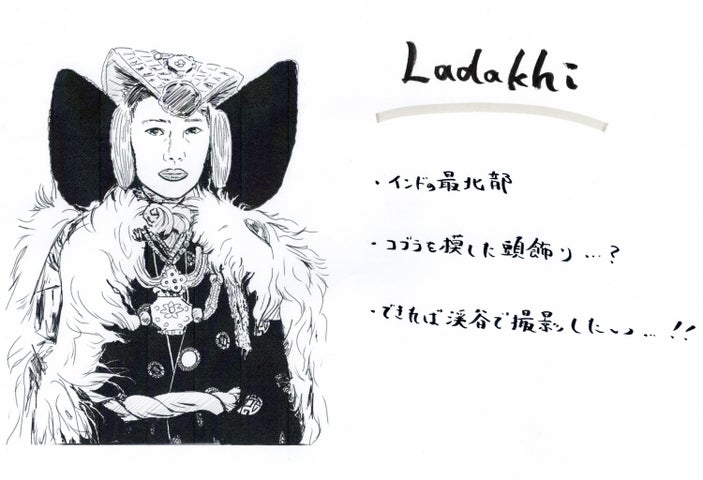 Ladakhi
・インドの最北部
・コブラを模した頭飾り…?
・できれば渓谷で撮影したい…!!